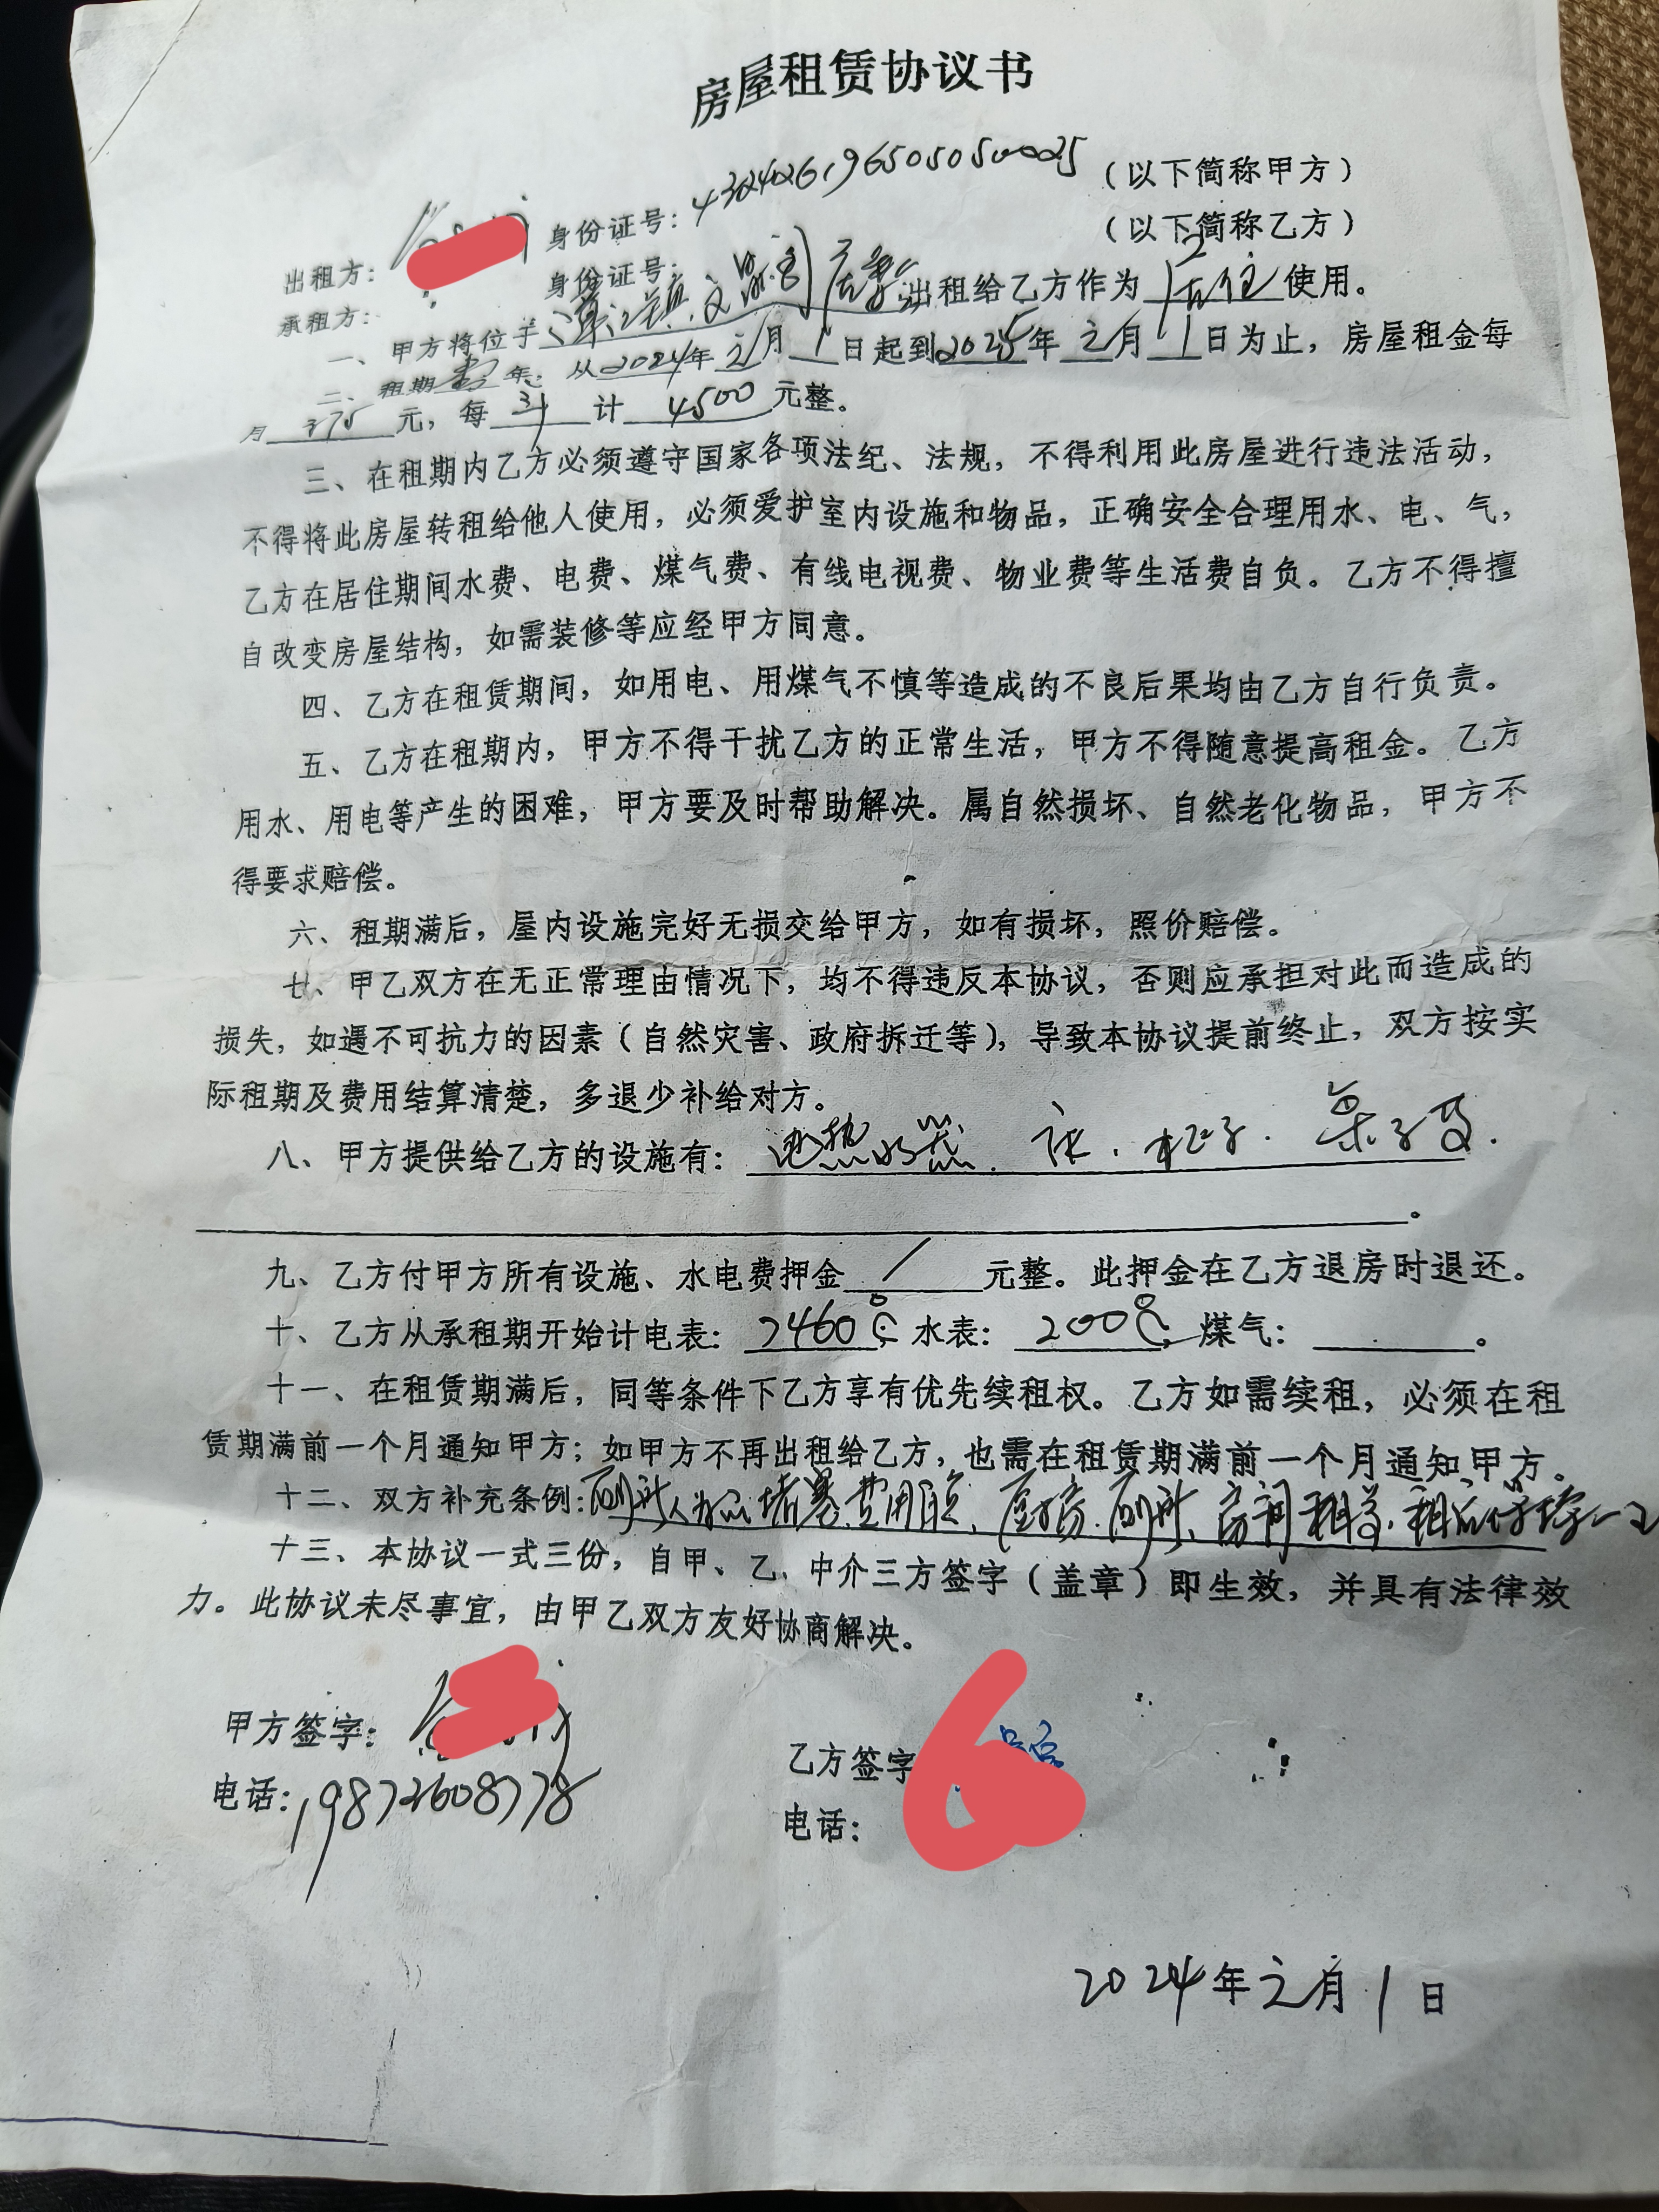 房屋租赁协议书
出租方： 身份证号：432426196505050025（以下简称甲方）
承租方： 身份证号： （以下简称乙方）
一、甲方将位于 出租给乙方作为居住使用。
二、租期 年，从2024年元月1日起到2025年元月1日为止，房屋租金每
月375元，每年计4500元整。
三、在租期内乙方必须遵守国家各项法纪、法规，不得利用此房屋进行违法活动，
不得将此房屋转租给他人使用，必须爱护室内设施和物品，正确安全合理用水、电、气，
乙方在居住期间水费、电费、煤气费、有线电视费、物业费等生活费自负。乙方不得擅
自改变房屋结构，如需装修等应经甲方同意。
四、乙方在租赁期间，如用电、用煤气不慎等造成的不良后果均由乙方自行负责。
五、乙方在租期内，甲方不得干扰乙方的正常生活，甲方不得随意提高租金。乙方
用水、用电等产生的困难，甲方要及时帮助解决。属自然损坏、自然老化物品，甲方不
得要求赔偿。
六、租期满后，屋内设施完好无损交给甲方，如有损坏，照价赔偿。
七、甲乙双方在无正常理由情况下，均不得违反本协议，否则应承担对此而造成的
损失，如遇不可抗力的因素（自然灾害、政府拆迁等），导致本协议提前终止，双方按实
际租期及费用结算清楚，多退少补给对方。
八、甲方提供给乙方的设施有：电热水器、床、柜子、
九、乙方付甲方所有设施、水电费押金/元整。此押金在乙方退房时退还。
十、乙方从承租期开始计电表：2460 水表：200 煤气： 。
十一、在租赁期满后，同等条件下乙方享有优先续租权。乙方如需续租，必须在租
赁期满前一个月通知甲方；如甲方不再出租给乙方，也需在租赁期满前一个月通知甲方。
十二、双方补充条例：厕所人为 堵塞费用自负、厨房、厕所、房间
十三、本协议一式三份，自甲、乙、中介三方签字（盖章）即生效，并具有法律效
力。此协议未尽事宜，由甲乙双方友好协商解决。
甲方签字：
乙方签字
电话：19872608778
电话：
2024年元月1日